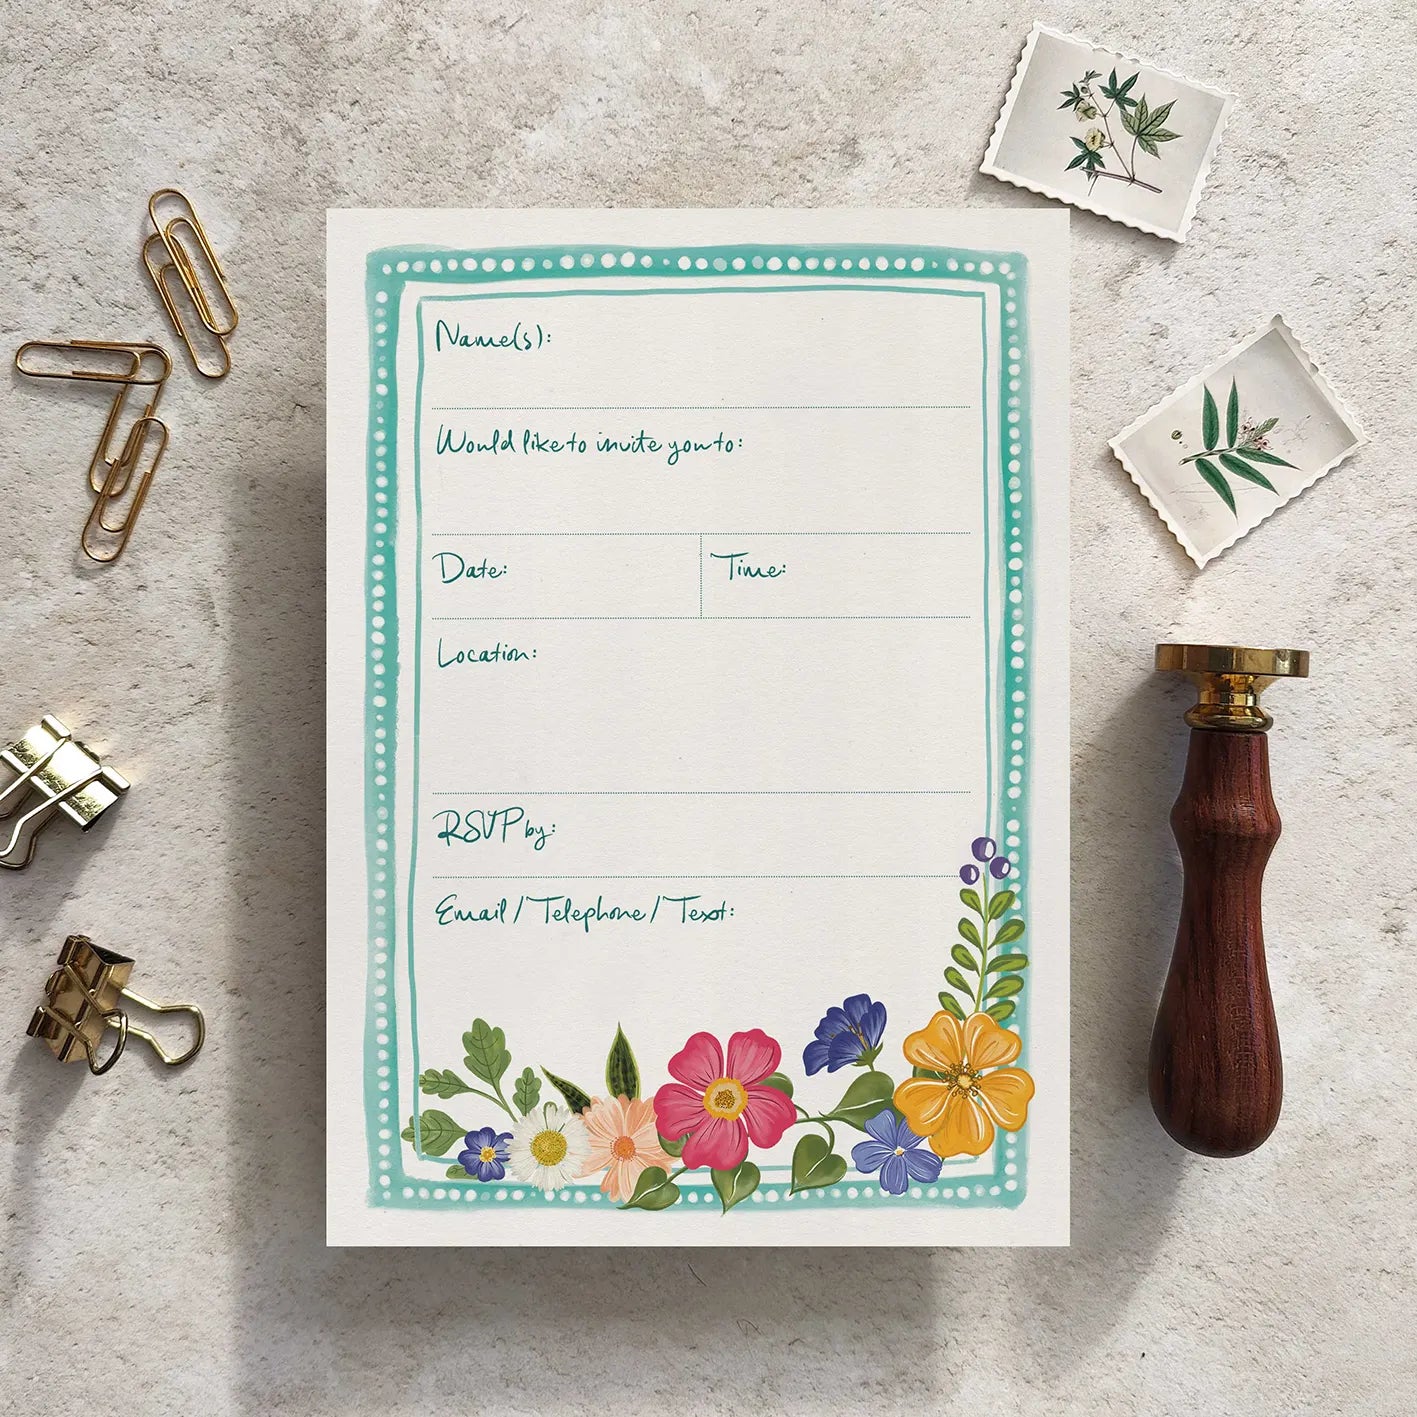 Name(s):
Would like to invite you to:
Date: Time:
Location:
RSVP by:
Email / Telephone / Text: